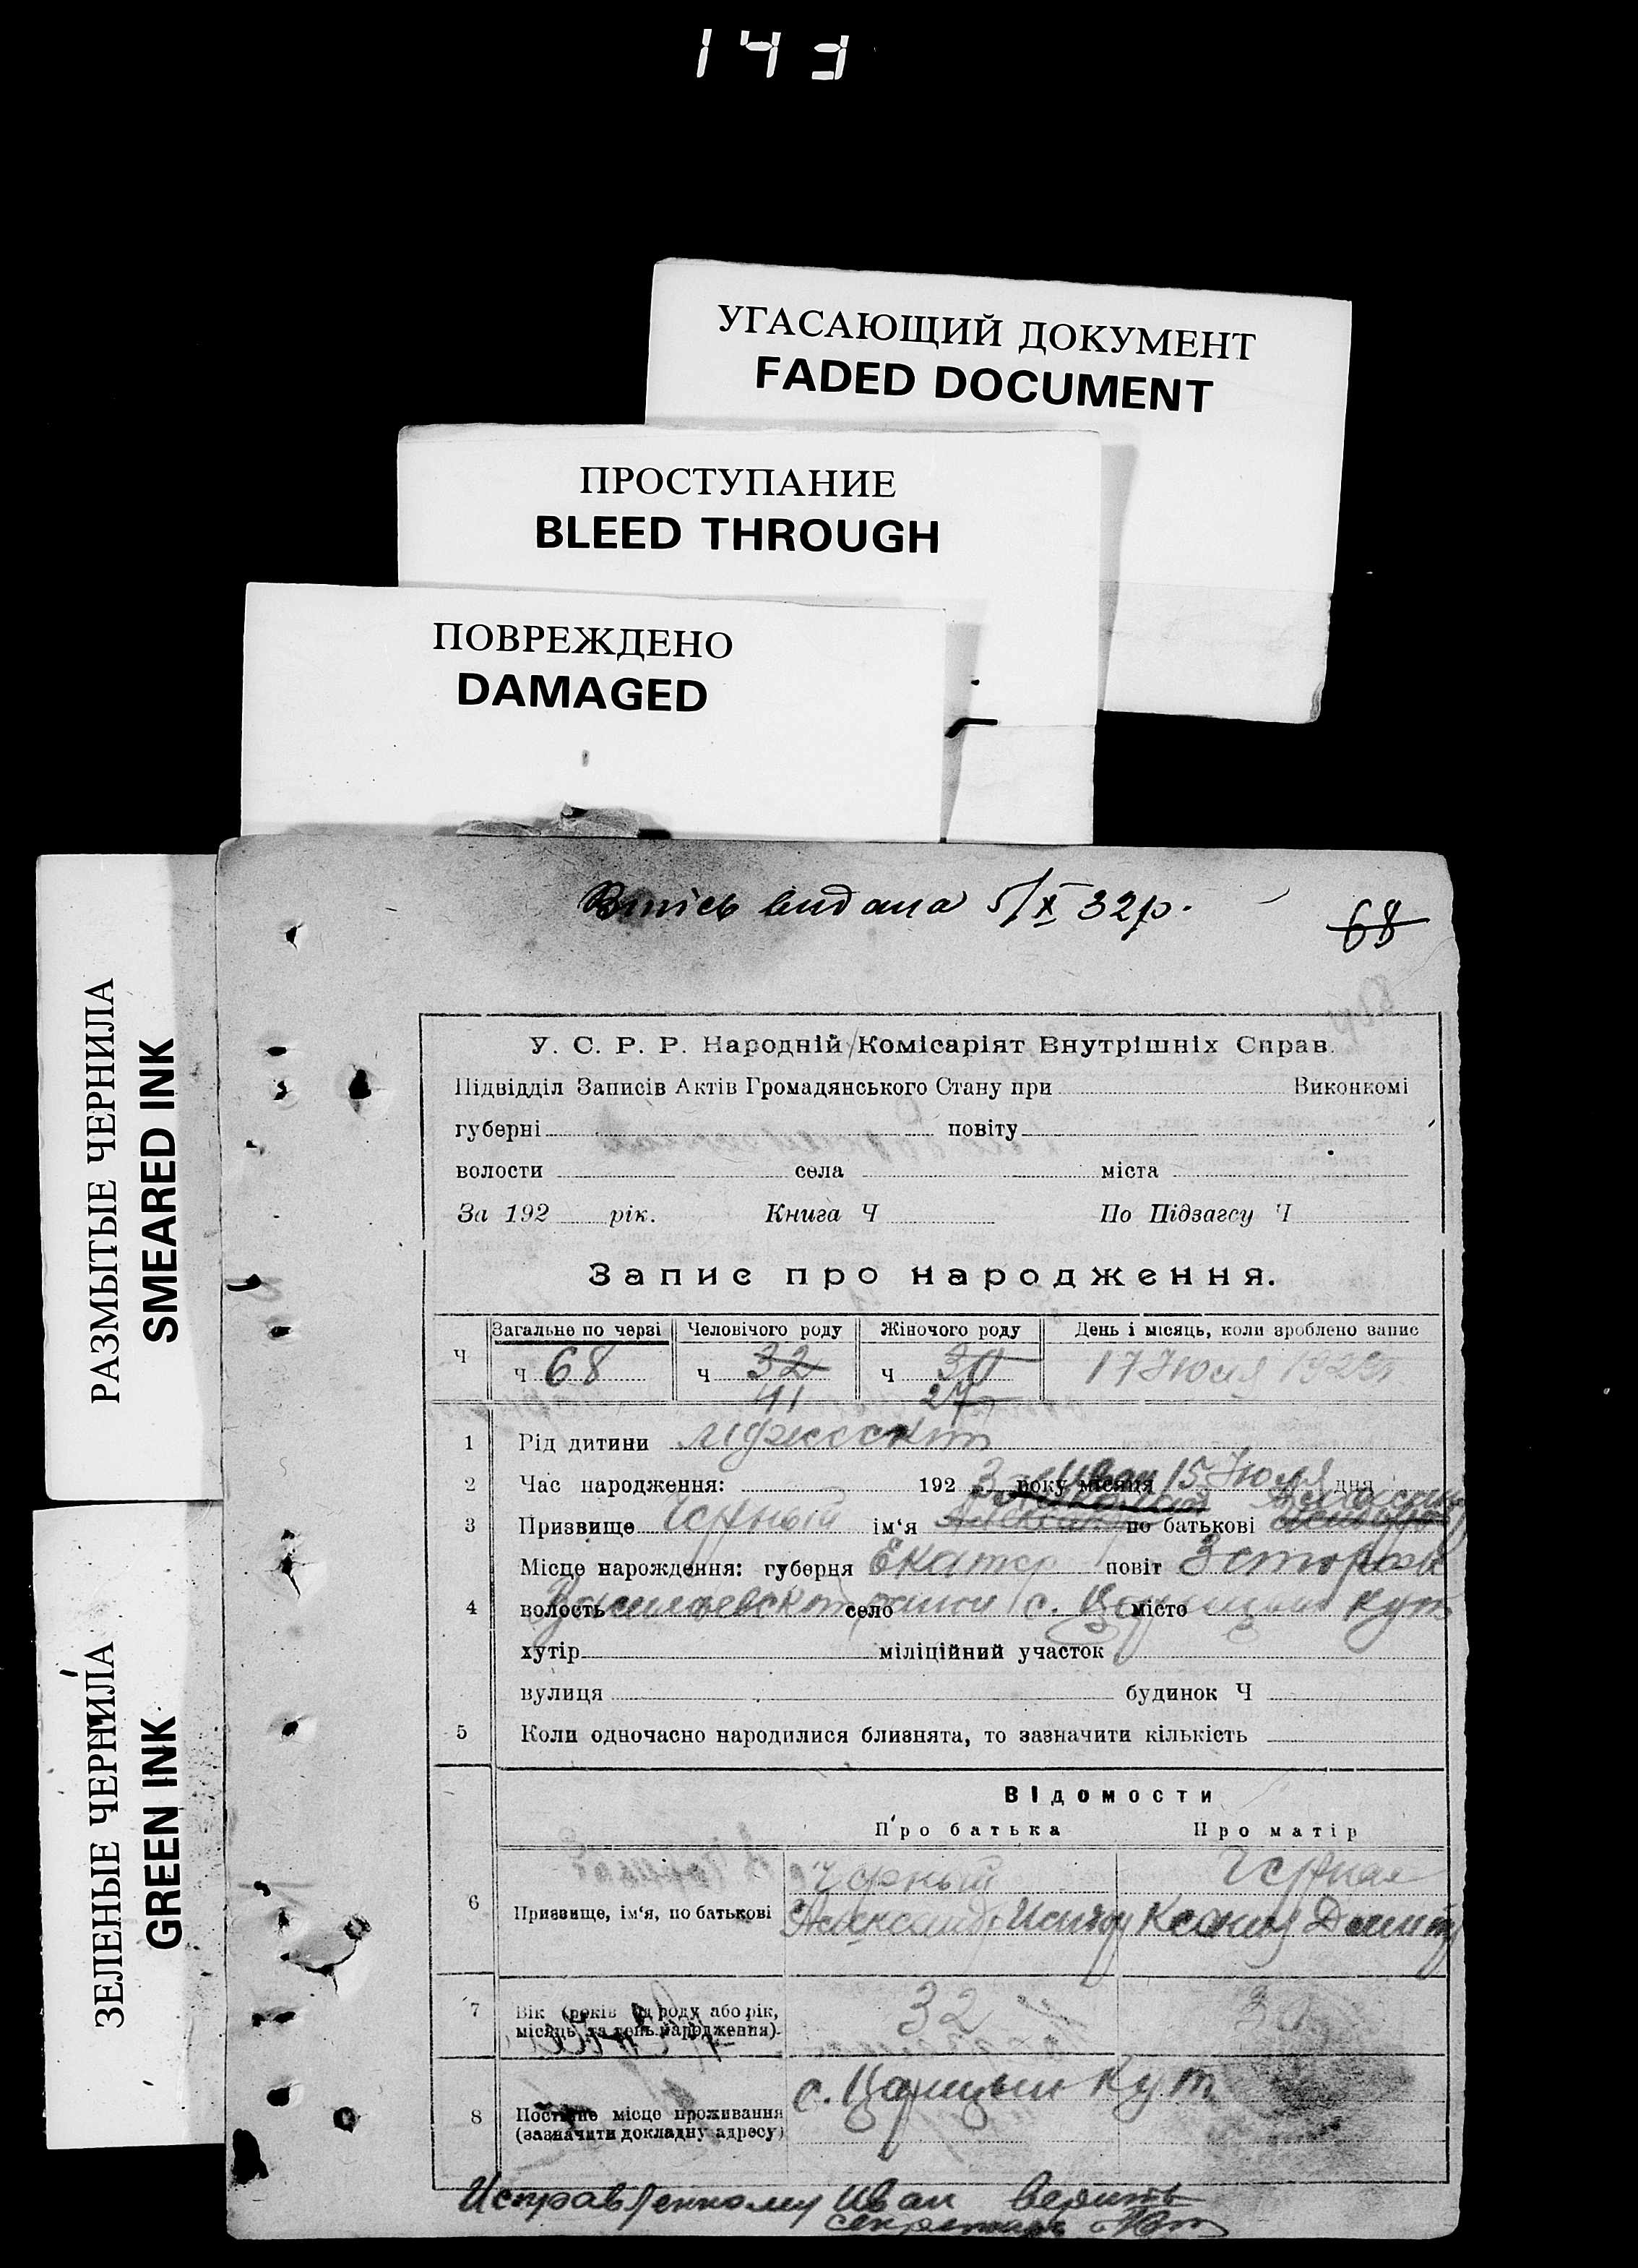 143
УГАСАЮЩИЙ ДОКУМЕНТ
FADED DOCUMENT
ПРОСТУПАНИЕ
BLEED THROUGH
ПОВРЕЖДЕНО
DAMAGED
РАЗМЫТЫЕ ЧЕРНИЛА
SMEARED INK
ЗЕЛЕНЫЕ ЧЕРНИЛА
GREEN INK
видана 5/X 32р.
68
У. С. Р. Р. Народній Комісаріят Внутрішніх Справ.
Підвідділ Записів Актів Громадянського Стану при Виконкомі
губерні повіту
волости села міста
За 192 рік. Книга Ч По Підзагсу Ч
Запис про народження.
Ч Загальне по черзі Человічого роду Жіночого роду День і місяць, коли зроблено запис
ч 68 ч 32 ч 30 17 Июля 1923
41 27
1 Рід дитини
2 Час народження: 192 3 року місяця 15 Июля дня
Иван
3 Призвище Черный ім‘я по батькові
Місце нарождення: губерня Екатер повіт
4 волость село с. місто Кут
хутір міліційний участок
вулиця будинок Ч
5 Коли одночасно народилися близнята, то зазначити кількість
Відомости
Про батька Про матір
6 Призвище, ім‘я, по батькові Черный Черная
Александр Ксения
7 Вік (років від роду або рік, 32 30
місяць та день народження)
8 Постійне місце проживання с. Царицын Кут
(зазначити докладну адресу)
Исправленному Иван верить
секретарь